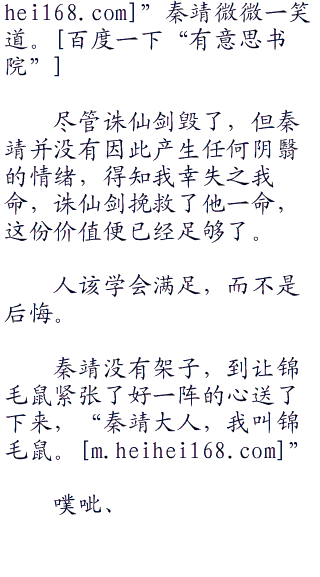 hei168.com]”秦靖微微一笑
道。[百度一下“有意思书
院”]
尽管诛仙剑毁了，但秦
靖并没有因此产生任何阴翳
的情绪，得知我幸失之我
命，诛仙剑挽救了他一命，
这份价值便已经足够了。
人该学会满足，而不是
后悔。
秦靖没有架子，到让锦
毛鼠紧张了好一阵的心送了
下来，“秦靖大人，我叫锦
毛鼠。[m.heihei168.com]”
噗呲、